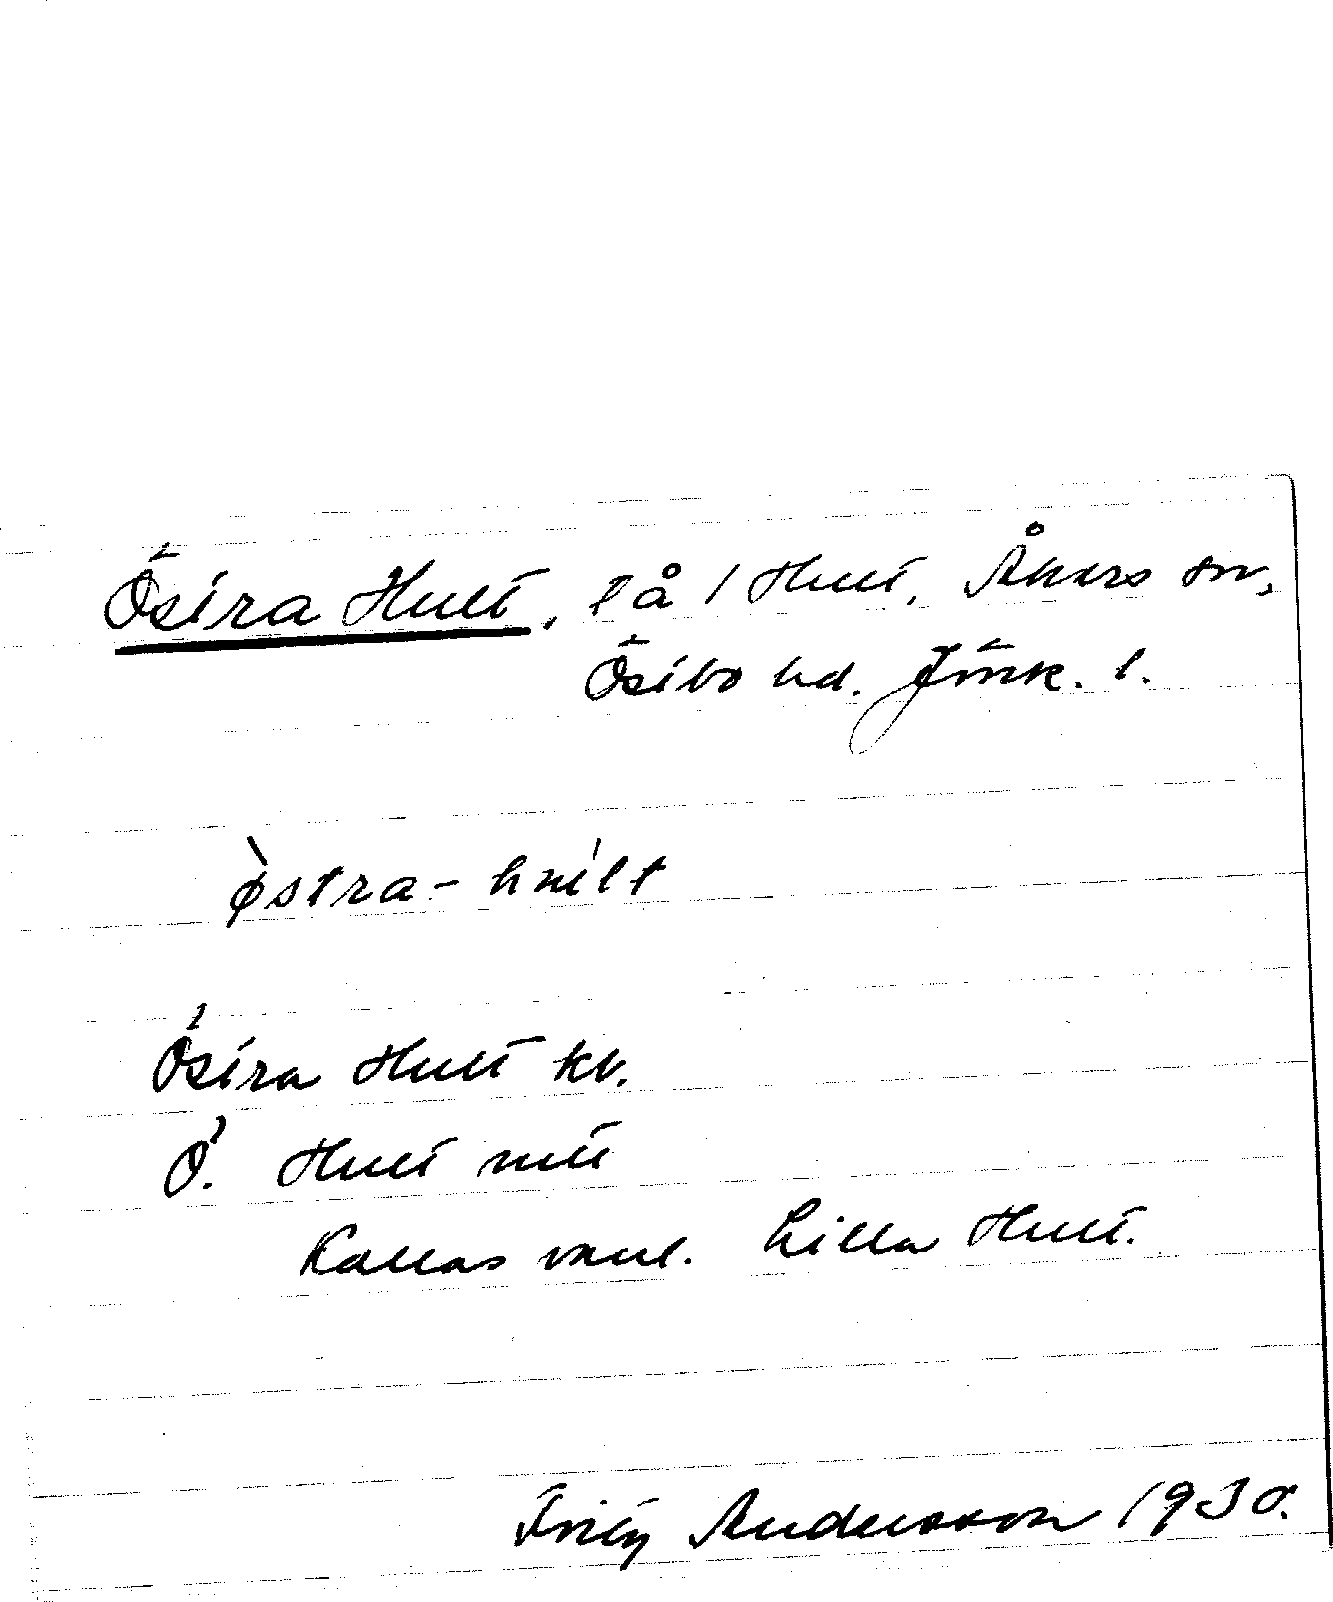 Östra Hult, lå 1 Hult, Åkers sn,
Östbo hd. Jönk. l.
ø̀stra-hult
Östra Hult kv.
Ö. Hult
Kallas vanl. Lilla Hult.
Fritz Andersson 1930.